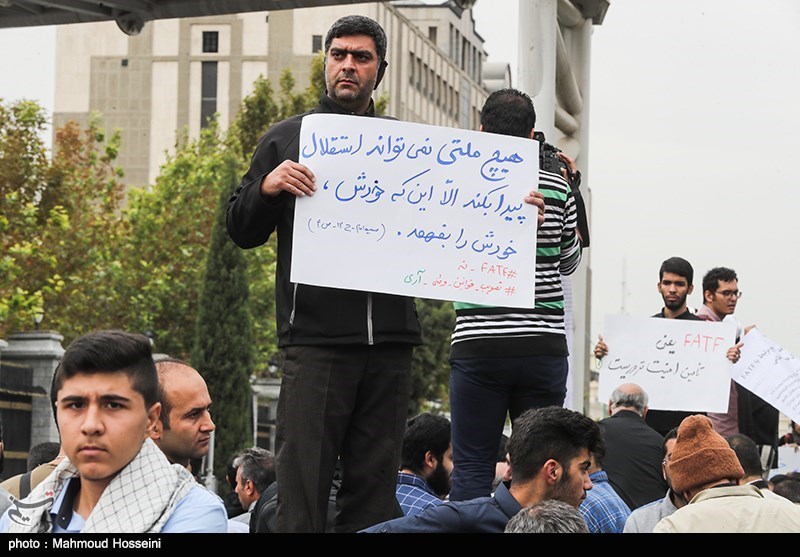 هیچ ملتی نمی تواند استقلال
پیدا بکند الّا این که خودش ،
خودش را بفهمد .
#FATF_نه
#تصویب_قوانین_وطنی_آری
FATF یعنی
تأمین امنیت تروریست
photo : Mahmoud Hosseini